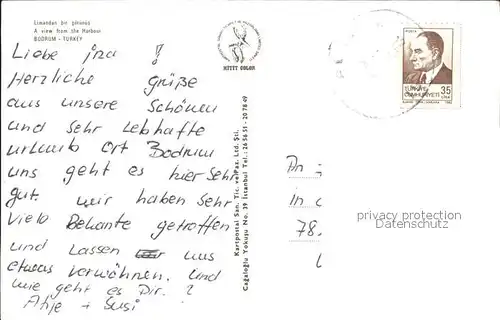 Limandan bir görünüş
A view from the Harbour
BODRUM - TURKEY
Liebe ina !
Herzliche grüße
aus unsere Schönen
und sehr Lebhafte
urlaub ort Bodrum
uns geht es hier sehr
gut. wir haben sehr
viele Bekante getroffen
und Lassen uns
etwas verwöhnen. und
wie geht es Dir. ?
+ Susi
HİTİT COLOR
Kartpostal San. Tic. ve Paz. Ltd. Şti.
Cağaloğlu Yokuşu No. 39 İstanbul Tel.: 26 56 51 - 20 78 49
POSTA
TÜRKİYE
CUMHURİYETİ
35
LİRA
An
in
78.
privacy protection
Datenschutz